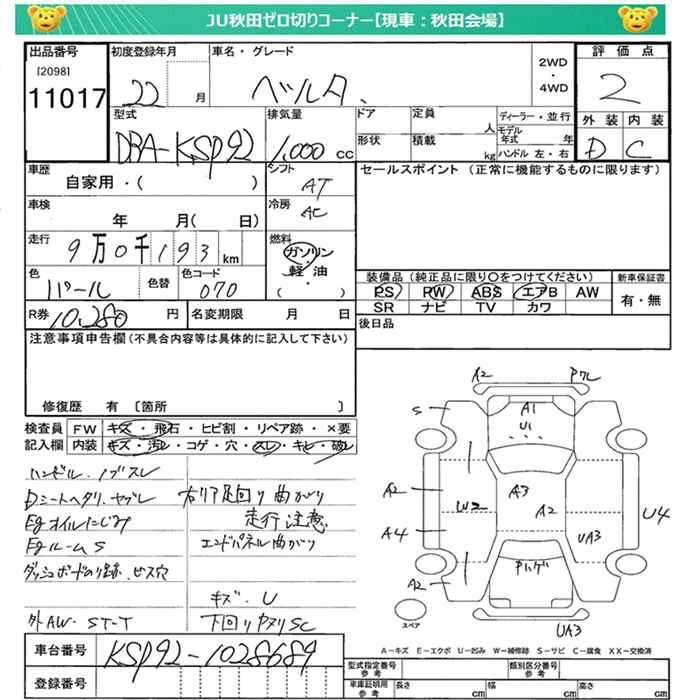 JU秋田ゼロ切りコーナー【現車：秋田会場】
出品番号 初度登録年月 車名・グレード 2WD・4WD 評価点
[2098]
11017 22 月 ベルタ 2
型式 排気量 ドア 定員 人 ディーラー・並行 外装 内装
DBA-KSP92 1,000 cc 形状 積載 kg モデル年式 年 ハンドル 左・右 D C
車歴 自家用・( ) シフト AT セールスポイント (正常に機能するものに限ります)
車検 年 月( 日) 冷房 AC
走行 9万0千193km 燃料 ガソリン・軽油 ( )
色 パール 色替 色コード 070 装備品 (純正品に限り○をつけてください) 新車保証書
PS PW ABS エアB AW 有・無
SR ナビ TV カワ
R券 10,280 円 名変期限 月 日 後日品
注意事項申告欄 (不具合内容等は具体的に記入して下さい)
修復歴 有 [箇所 ]
検査員 FW キズ・飛石・ヒビ割・リペア跡・×要
記入欄 内装 キズ・汚レ・コゲ・穴・スレ・キレ・破レ
ハンドル・ノブスレ
Dシートヘタリ、ヤブレ 右リア足回り曲がり
Egオイルにじみ 走行注意
EgルームS エンドパネル曲がり
ダッシュボードのり跡、ビス穴
キズ、U
外AW、ST-T 下回りサビSC
A2
S A1 U1
A2 W2 A3 A2 U4
A4 UA3
A2 Pハゲ
スペア UA3
A－キズ E－エクボ U－凹み W－補修跡 S－サビ C－腐食 XX－交換済
車台番号 KSP92-1028689
登録番号
型式指定番号 参考 類別区分番号 参考
車庫証明用 参考 長さ cm 幅 cm 高さ cm